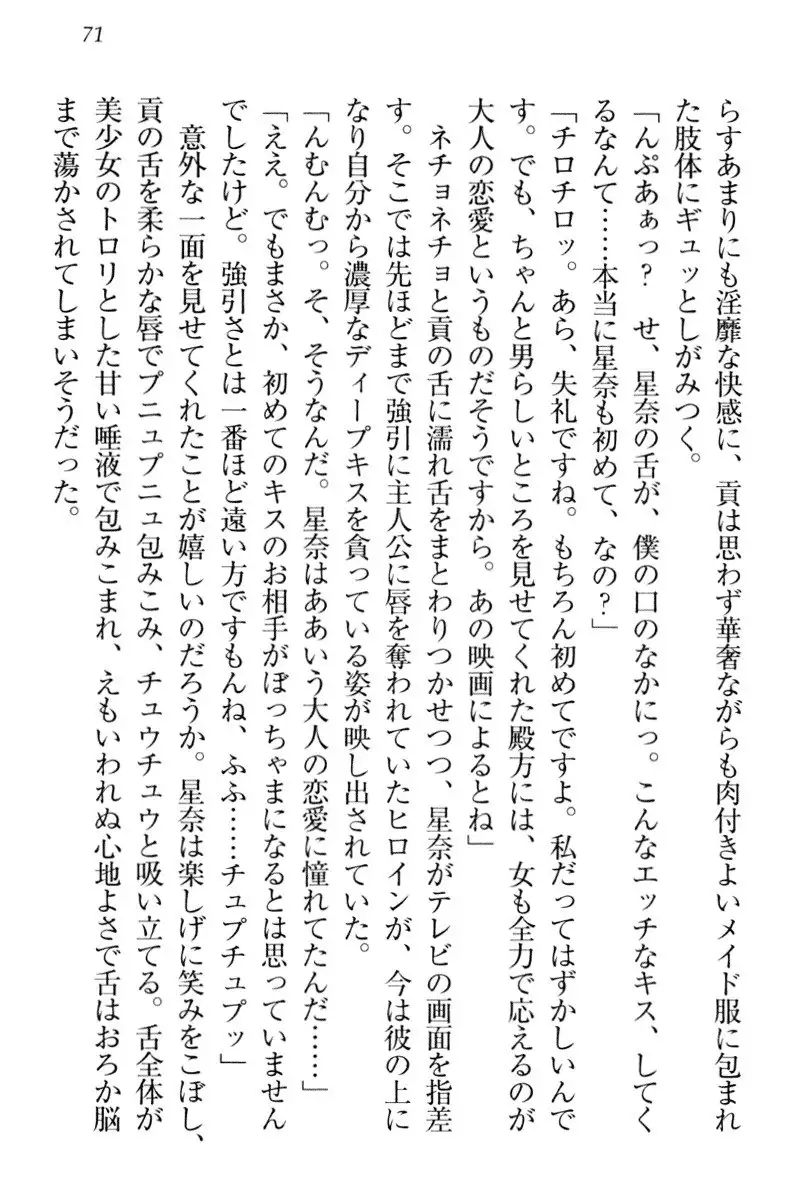 71
らすあまりにも淫靡な快感に、貢は思わず華奢ながらも肉付きよいメイド服に包まれ
た肢体にギュッとしがみつく。
「んぷあぁっ？　せ、星奈の舌が、僕の口のなかにっ。こんなエッチなキス、してく
るなんて……本当に星奈も初めて、なの？」
「チロチロッ。あら、失礼ですね。もちろん初めてですよ。私だってはずかしいんで
す。でも、ちゃんと男らしいところを見せてくれた殿方には、女も全力で応えるのが
大人の恋愛というものだそうですから。あの映画によるとね」
ネチョネチョと貢の舌に濡れ舌をまとわりつかせつつ、星奈がテレビの画面を指差
す。そこでは先ほどまで強引に主人公に唇を奪われていたヒロインが、今は彼の上に
なり自分から濃厚なディープキスを貪っている姿が映し出されていた。
「んむんむっ。そ、そうなんだ。星奈はああいう大人の恋愛に憧れてたんだ……」
「ええ。でもまさか、初めてのキスのお相手がぼっちゃまになるとは思っていません
でしたけど。強引さとは一番ほど遠い方ですもんね、ふふ……チュプチュプッ」
意外な一面を見せてくれたことが嬉しいのだろうか。星奈は楽しげに笑みをこぼし、
貢の舌を柔らかな唇でプニュプニュ包みこみ、チュウチュウと吸い立てる。舌全体が
美少女のトロリとした甘い唾液で包みこまれ、えもいわれぬ心地よさで舌はおろか脳
まで蕩かされてしまいそうだった。